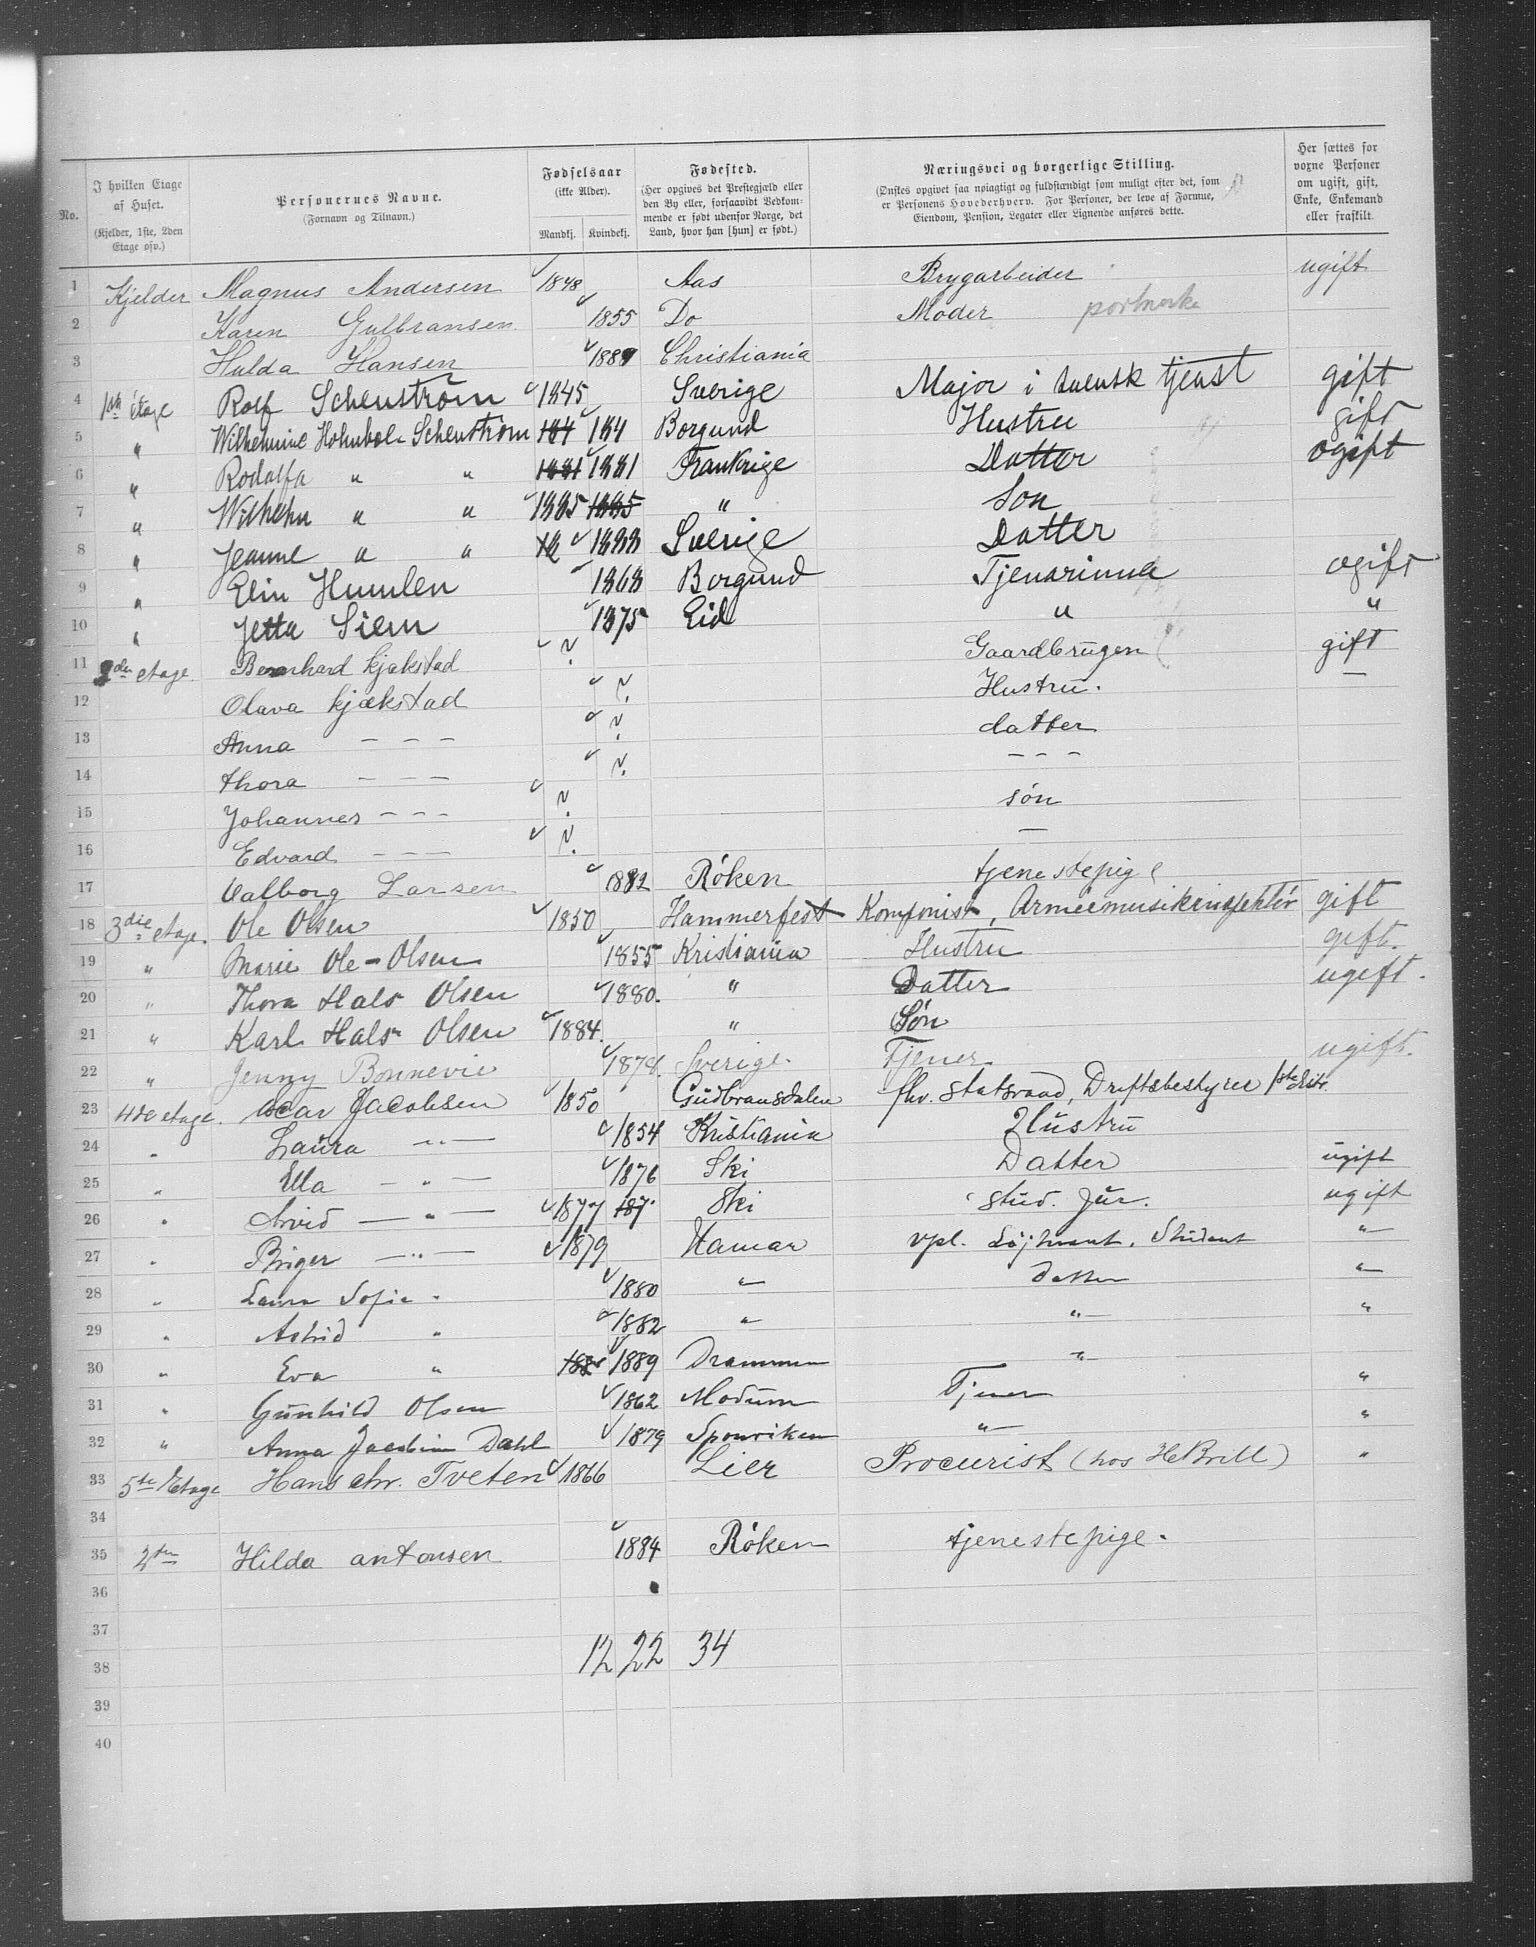 No.
I hvilken Etage af Huset. (Kjelder, 1ste, 2den Etage osv.)
Personernes Navne. (Fornavn og Tilnavn.)
Fødselsaar (ikke Alder). Mandkj. Kvindekj.
Fødested. (Her opgives det Prestegjæld eller den By eller, forsaavidt Vedkommende er født udenfor Norge, det Land, hvor han [hun] er født.)
Næringsvei og borgerlige Stilling. (Ønskes opgivet saa nøiagtigt og fuldstændigt som muligt efter det, som er Personens Hovederhverv. For Personer, der leve af Formue, Eiendom, Pension, Legater eller Lignende anføres dette.
Her sættes for voxne Personer om ugift, gift, Enke, Enkemand eller fraskilt.
1 Kjelder Magnus Andersen 1848 Aas Brygarbeider ugift
2 Karen Gulbransen 1855 Do Moder
3 Hulda Hansen Christiania
4 1ste etage Rolf Schenström 1845 Sverige Major i svensk tjenst gift
5 " Wilhelmine Schenström 184 184 Borgund Hustru gift
6 " Rodolfa " " 1881 1881 Frankrige Datter ogift
7 " Wilhelm " " 1885 1885 " Son
8 " Jeanne " " 18 1888 Sverige Datter
9 " Elin Humlen 1868 Borgund Tjenarinna ogift
10 " Jetta Siem 1875 Eid " "
11 2den etage Bernhard kjekstad Gaardbrugen gift
12 Olava kjækstad Hustru. —
13 Anna — — — datter
14 thora — — — — — —
15 Johannes — — — søn
16 Edvard — — — —
17 Valborg Larsen 1882 Røken tjenestepige
18 3die etage. Ole Olsen 1850 Hammerfest Komponist, Armeemusikinspektør gift
19 " Marie Ole-Olsen 1855 Kristiania Hustru gift.
20 " Thora Hals Olsen 1880. " Datter ugift.
21 " Karl Hals Olsen 1884. " Søn
22 " Jenny Bonnevie 1878. Sverige. Tjener ugift.
23 4de etage. Oscar Jacobsen 1850 Gudbransdalen fhv. statsraad, Driftsbestyrer
24 " Laura —"— 1854 Kristiania Hustru
25 " Ella —"— 1876 Ski Datter ugift
26 " Arvid —"— 1877 187 Ski stud. jur. ugift
27 " Birger —"— 1879 Hamar vpl. Løjtnant. Student "
28 " Laura Sofie " 1880 " datter "
29 " Astrid " 1882 " " "
30 " Eva " 1889 Drammen "
31 " Gunhild Olsen 1862 Modum Tjener "
32 " Anna Jacobine Dahl 1879 " "
33 5te Etage Hans Chr. Tveten 1866 Lier Procurist (hos ) "
34
35 2den Hilda antonsen 1884 Røken tjenestepige.
36
37
38 12 22 34
39
40